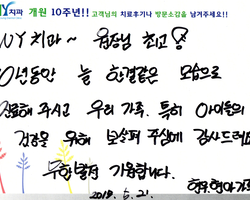 NY치과 개원 10주년!! 고객님의 치료후기나 방문소감을 남겨주세요!!
NY 치과~ 원장님 최고
10년동안 늘 한결같은 모습으로
진료해 주시고 우리 가족. 특히 아이들의
건강을 위해 보살펴 주심에 감사드려요
무한발전 기원합니다.
2019. 6. 21.